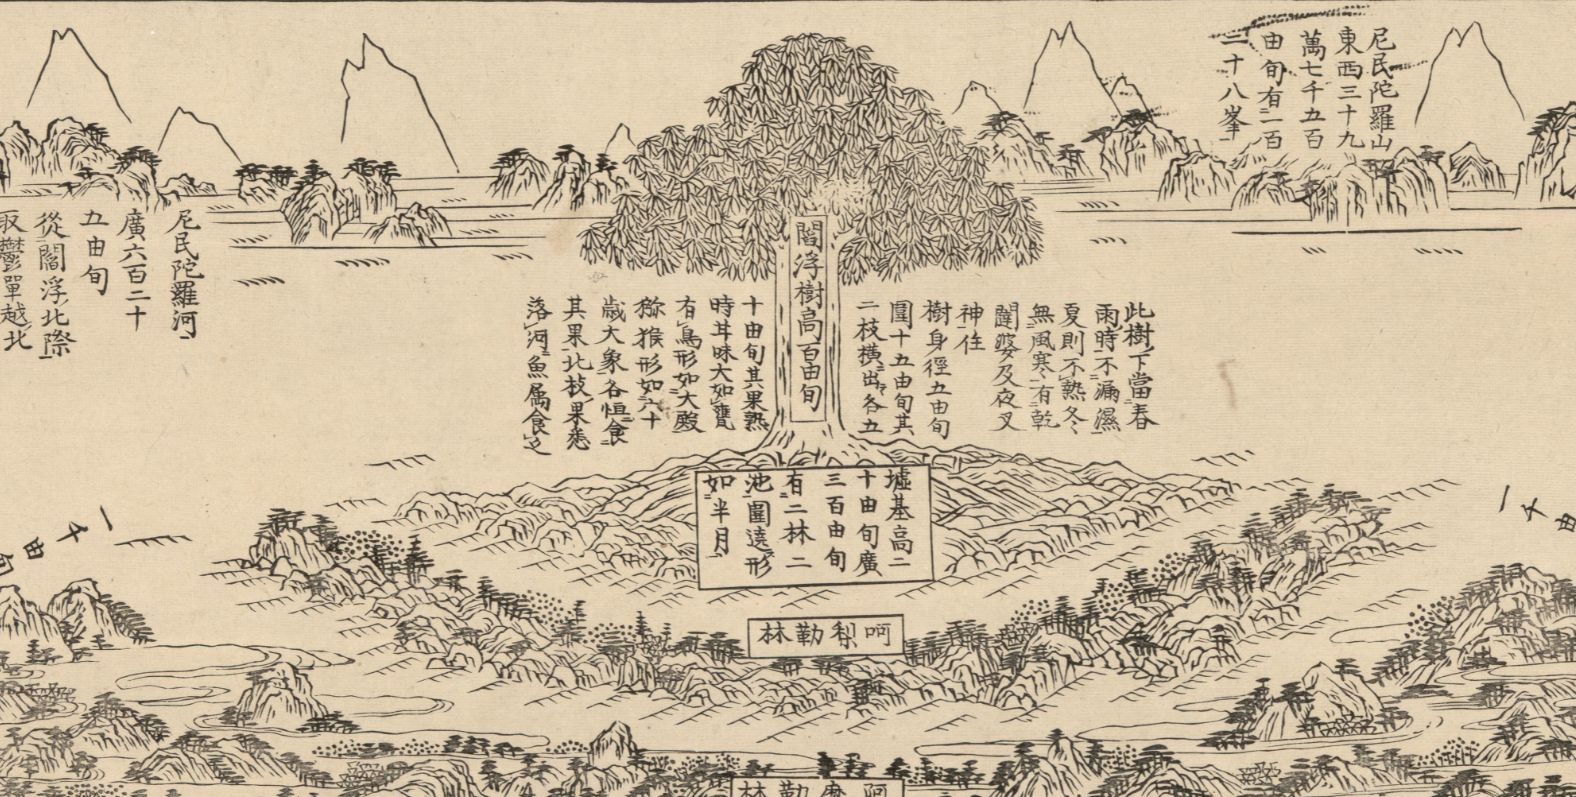 尼民陀羅山
東西三十九
萬七千五百
由旬有一百
二十八峯
閻浮樹高百由旬
此樹下當春
雨時不漏濕
夏則不熱冬
無風寒有乾
闥婆及夜叉
神住
樹身徑五由旬
圍十五由旬其
二枝橫出各五
十由旬其果熟
時其味大如甕
有鳥形如大殿
猕猴形如六十
歳大象各恒食
其果北枝果悉
落河魚属食之
尼民陀羅河
廣六百二十
五由旬
從閻浮北際
取鬱單越北
墟基高二
十由旬廣
三百由旬
有二林二
池圍遶形
如半月
一千由
一千由旬
呵梨勒林
阿摩勒林